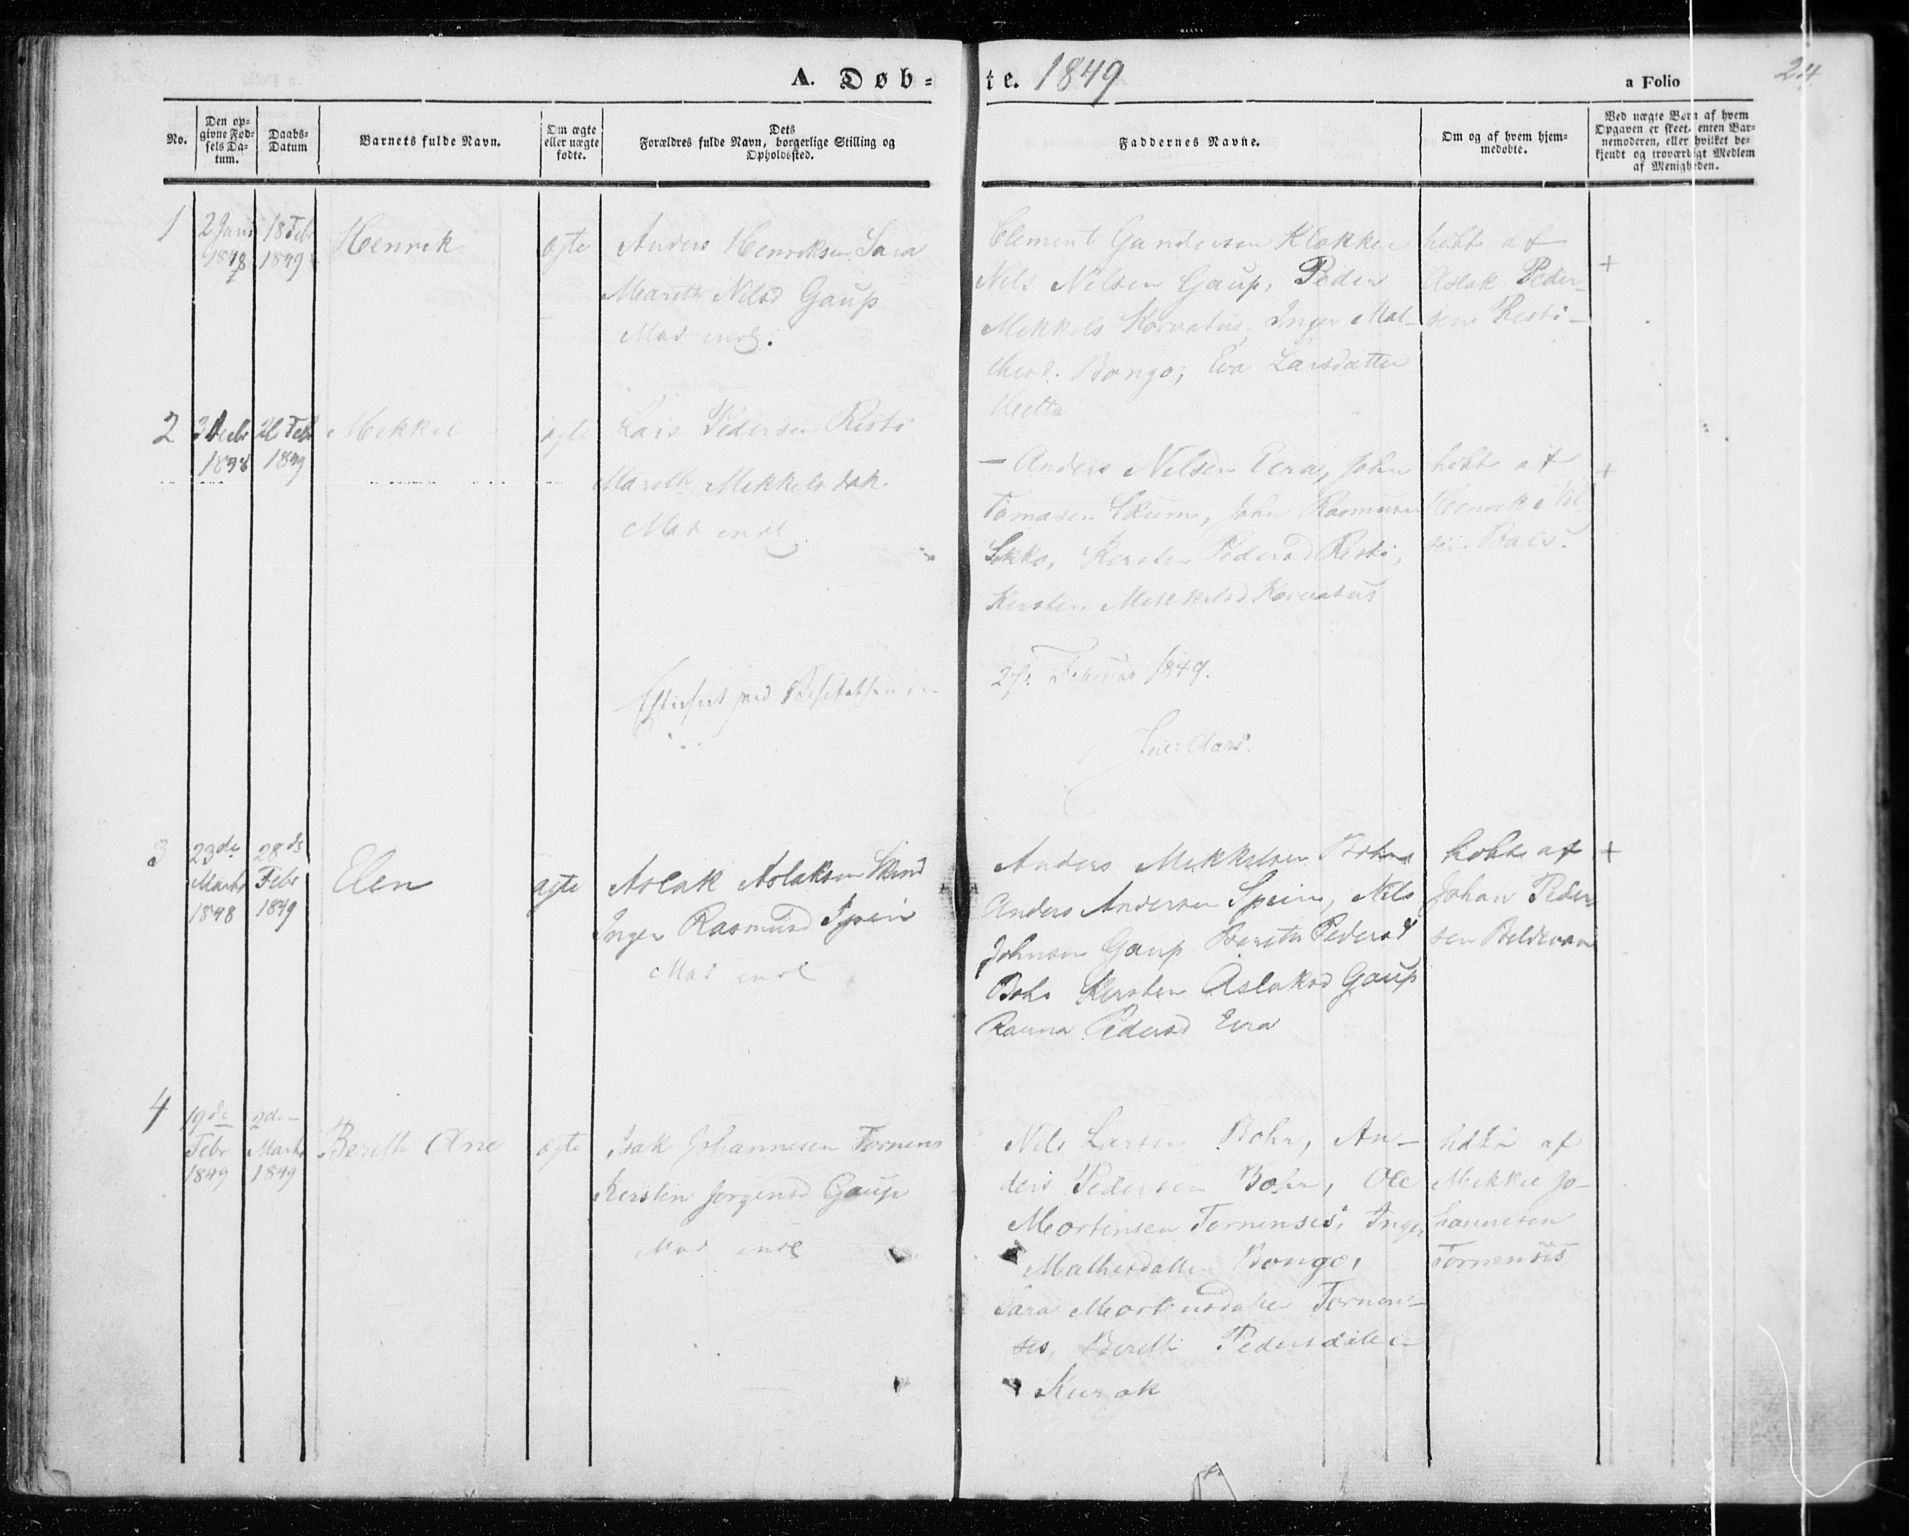 A. Døb-
te. 1849
a Folio
24.
No.
Den op-
givne Fød-
sels Da-
tum.
Daabs-
Datum
Barnets fulde Navn.
Om ægte
eller uægte
fødte.
Dets
Forældres fulde Navn, borgerlige Stilling og
Opholdssted.
Faddernes Navne.
Om og af hvem hjem-
medøbte.
Ved uægte Børn af hvem
Opgaven er skeet, enten Bar-
nemoderen, eller hvilket be-
kjendt og troværdigt Medlem
af Menigheden.
1
2 Juni
1848
18 Febr
1849
Henrik
ægte
Anders Henriksen Sara
Mareth Nilsd Gaup
Mas indl.
Clement Gundersen Klokker
Nils Nilsen Gaup, Peder
Mikkels Korvatus, Inger Mat-
thesd. Bongo, Eva Larsdatter
Hætta
høbt af
Aslak Peder-
sen Risti-
+
2
3 Decbr
1848
Febr
1849
Mikkel
ægte
Lars Pedersen Risti
Mareth Mikkelsdatt.
Mas indl.
- Anders Nilsen Eira, John
Tomasen Skum, John Rasmusen
Kersten Pedersd Risti,
Kersten Mikkelsd Korvatus
høbt af
Henrik Nil
sen
+
ved Visitatsen
27. Februar 1849.
3
23de
Marts
1848
28de
Febr
1849
Elen
ægte
Aslak Aslaksen Skind
Inger Rasmusd Spein
Mas indl
Anders Mikkelsen
Anders Andersen Spein, Nils
Johnsen Gaup Bereth Pedersd
Kersten Aslaksd Gaup
Rauna Pedersd Eira
høbt af
Johan Peder-
sen
+
4
19de
Febr
1849
2den
Marts
1849
Bereth Ane
ægte
Isak Johannesen Tornens
Kerstin Jørgensd Gaup
Mas indl
Nils Larsen Bohr, An-
ders Pedersen Bohr, Ole
Mortensen Tornensis, Inger
Mathisdatter Bongo,
Sara Mortensdatter Tornen-
sis, Bereth Pedersdatter
Kurak
høbt af
Mikkel Jo-
hannesen
Tornensis